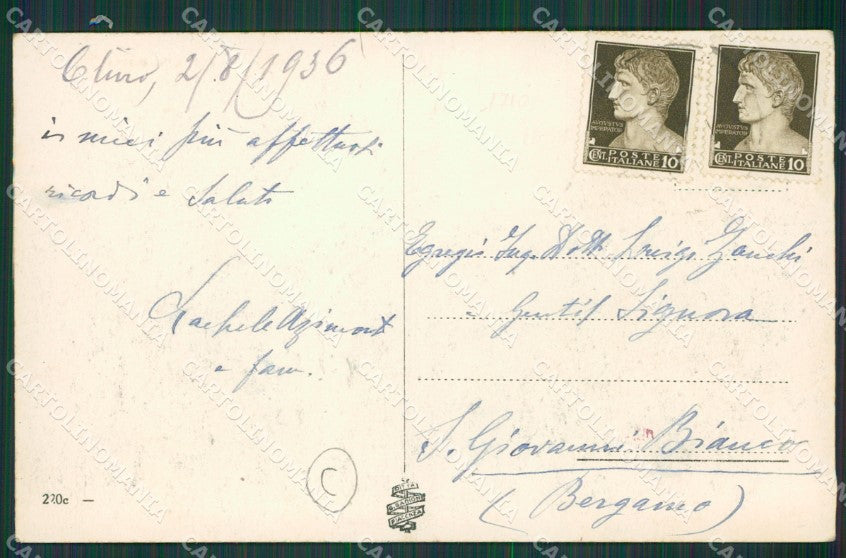 Clivio, 2/8/1936
i miei più affettuosi
ricordi e saluti
Rachele Azimonti
e fam.
C
220c —
AVGVSTVS
IMPERATOR
CENT. POSTE ITALIANE 10
AVGVSTVS
IMPERATOR
CENT. POSTE ITALIANE 10
Egregio Ing. Dott. Luigi Zanchi
e Gentil Signora
S. Giovanni Bianco
(Bergamo)
CARTOLINOMANIA